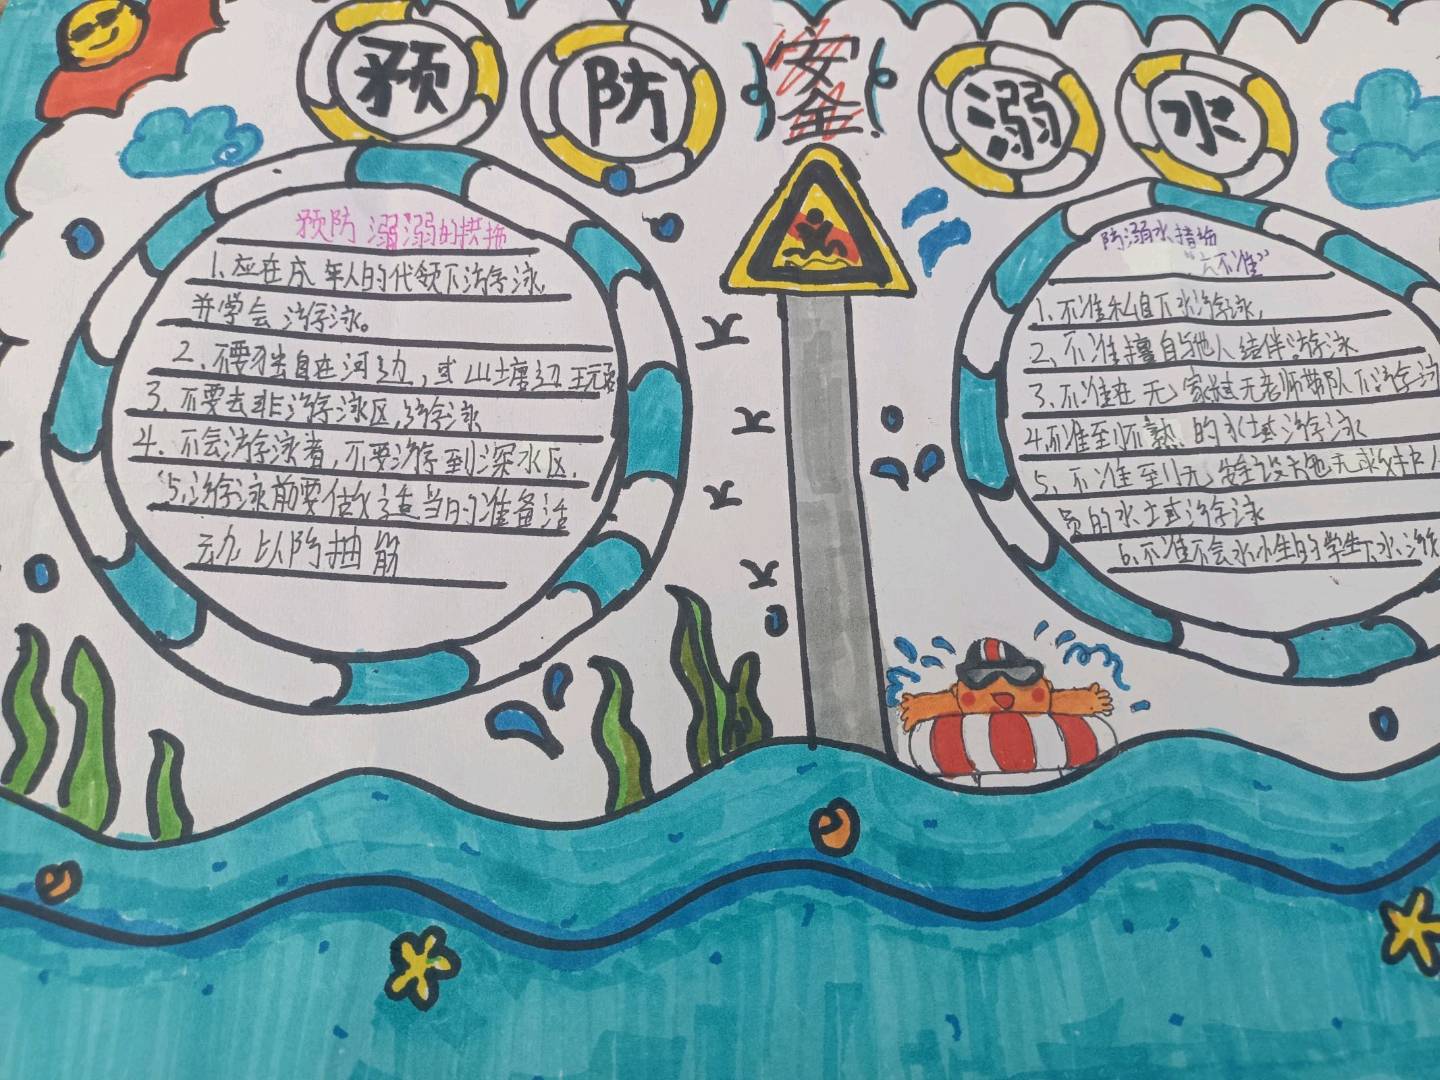 预防安全溺水
预防溺溺的措施
1、应在成年人的代领下游泳
并学会游泳。
2、不要独自在河边,或山塘边玩
3、不要去非游泳区游泳
4、不会游泳者,不要游到深水区,
5、游泳前要做适当的准备活
动以防抽筋
防溺水措施
"六不准"
1、不准私自下水游泳,
2、不准擅自与他人结伴游泳
3、不准在无家长无老师带队下游泳
4不准到不熟的水域游泳
5、不准到无安全设无救
员的水域游泳
6、不准不会水性的学生下水